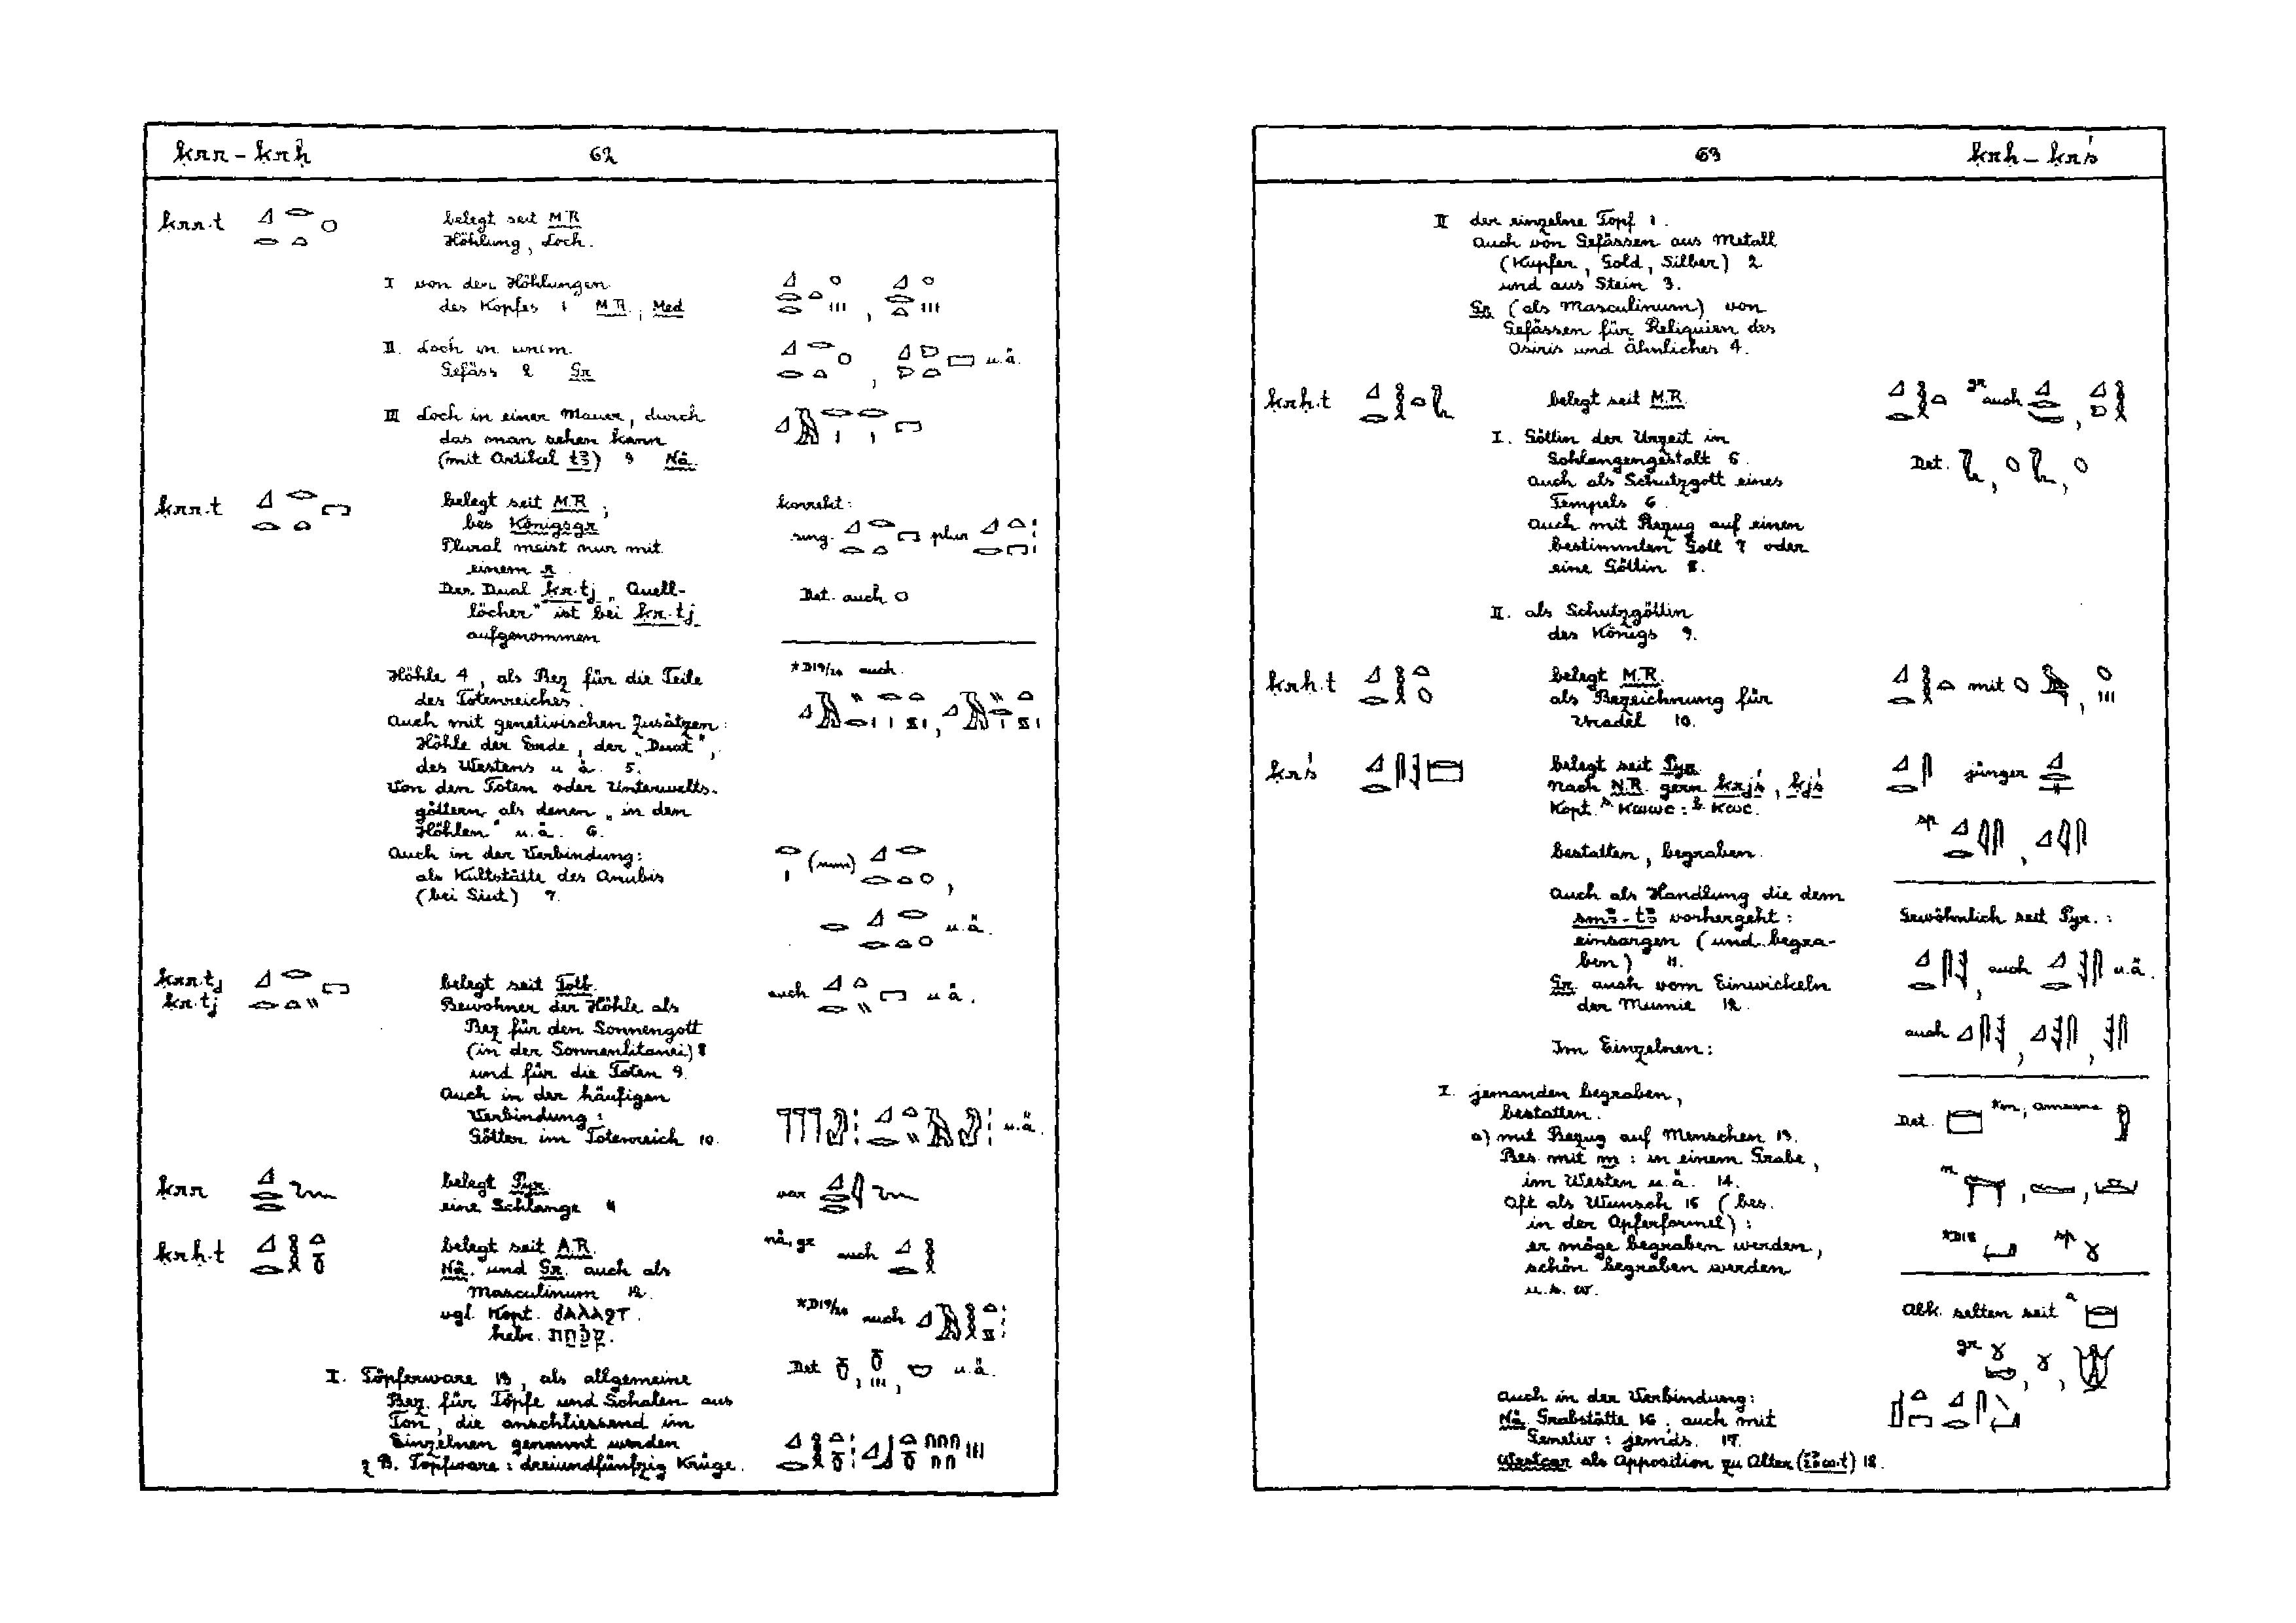 ḳrr – ḳrḥ 62
ḳrr.t
belegt seit M.R.
Höhlung, Loch.
I von den Höhlungen
des Kopfes 1 M.R., Med
II. Loch in einem
Gefäss 2 Gr
u.ä.
III Loch in einer Mauer, durch
das man sehen kann
(mit Artikel tꜣ) 3 Nä.
ḳrr.t
belegt seit M.R.,
bes Königsgr
Plural meist nur mit
einem r.
Der Dual ḳr.tj „Quell-
löcher" ist bei ḳr.tj
aufgenommen
korrekt:
sing. plur
Det. auch
Höhle 4, als Bez für die Teile
des Totenreiches.
Auch mit genetivischen Zusätzen:
Höhle der Erde, der „Duat",
des Westens u ä. 5.
Von den Toten oder Unterwelts-
göttern als denen „in den
Höhlen" u.ä. 6.
Auch in der Verbindung:
als Kultstätte des Anubis
(bei Siut) 7.
*D19/20 auch.
u.ä.
ḳrr.tj
ḳr.tj
belegt seit Totb.
Bewohner der Höhle als
Bez für den Sonnengott
(in der Sonnenlitanei) 8
und für die Toten 9.
Auch in der häufigen
Verbindung:
Götter im Totenreich 10.
auch u ä.
u.ä.
ḳrr
belegt Pyr.
eine Schlange 11
var
ḳrḥ.t
belegt seit A.R.
Nä. und Gr. auch als
Masculinum 12.
vgl. Kopt. ϭⲁⲗⲁϩⲧ.
hebr. קלחת.
nä, gr auch
*D19/20 auch
Det u.ä.
I. Töpferware 13, als allgemeine
Bez. für Töpfe und Schalen aus
Ton, die anschliessend im
Einzelnen genannt werden
z B. Topfware: dreiundfünfzig Krüge.
63 ḳrḥ – ḳrś
II der einzelne Topf 1.
Auch von Gefässen aus Metall
(Kupfer, Gold, Silber) 2
und aus Stein 3.
Gr. (als Masculinum) von
Gefässen für Reliquien des
Osiris und Ähnliches 4.
ḳrḥ.t
belegt seit M.R.
gr auch
I. Göttin der Urzeit in
Schlangengestalt 5.
Auch als Schutzgott eines
Tempels 6.
Auch mit Bezug auf einen
bestimmten Gott 7 oder
eine Göttin 8.
Det.
II. als Schutzgöttin
des Königs 9.
ḳrḥ.t
belegt M.R.
als Bezeichnung für
Uradel 10.
mit
ḳrś
belegt seit Pyr.
Nach N.R. gern ḳrjś, ḳjś
Kopt. S ⲕⲱⲱⲥ: B. ⲕⲱⲥ.
bestatten, begraben.
jünger
sp
Auch als Handlung die dem
smꜣ-tꜣ vorhergeht:
einsargen (und begra-
ben) 11.
Gr. auch vom Einwickeln
der Mumie 12.
Im Einzelnen:
Gewöhnlich seit Pyr.:
auch u.ä.
auch
I. jemanden begraben,
bestatten.
a) mit Bezug auf Menschen 13.
Bes. mit m: in einem Grabe,
im Westen u.ä. 14.
Oft als Wunsch 15 (bes.
in der Opferformel):
er möge begraben werden,
schön begraben werden
u.s.w.
Det.
*D18 sp
Abk. selten seit
gr
Auch in der Verbindung:
Nä. Grabstätte 16, auch mit
Genetiv: jemds. 17.
Westcar als Apposition zu Alter (iꜣw.t) 18.